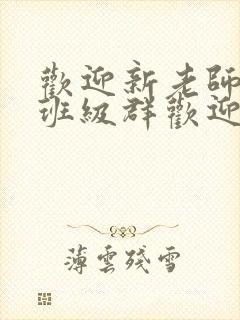 歡迎新老師
班級群歡迎
薄雲殘雪